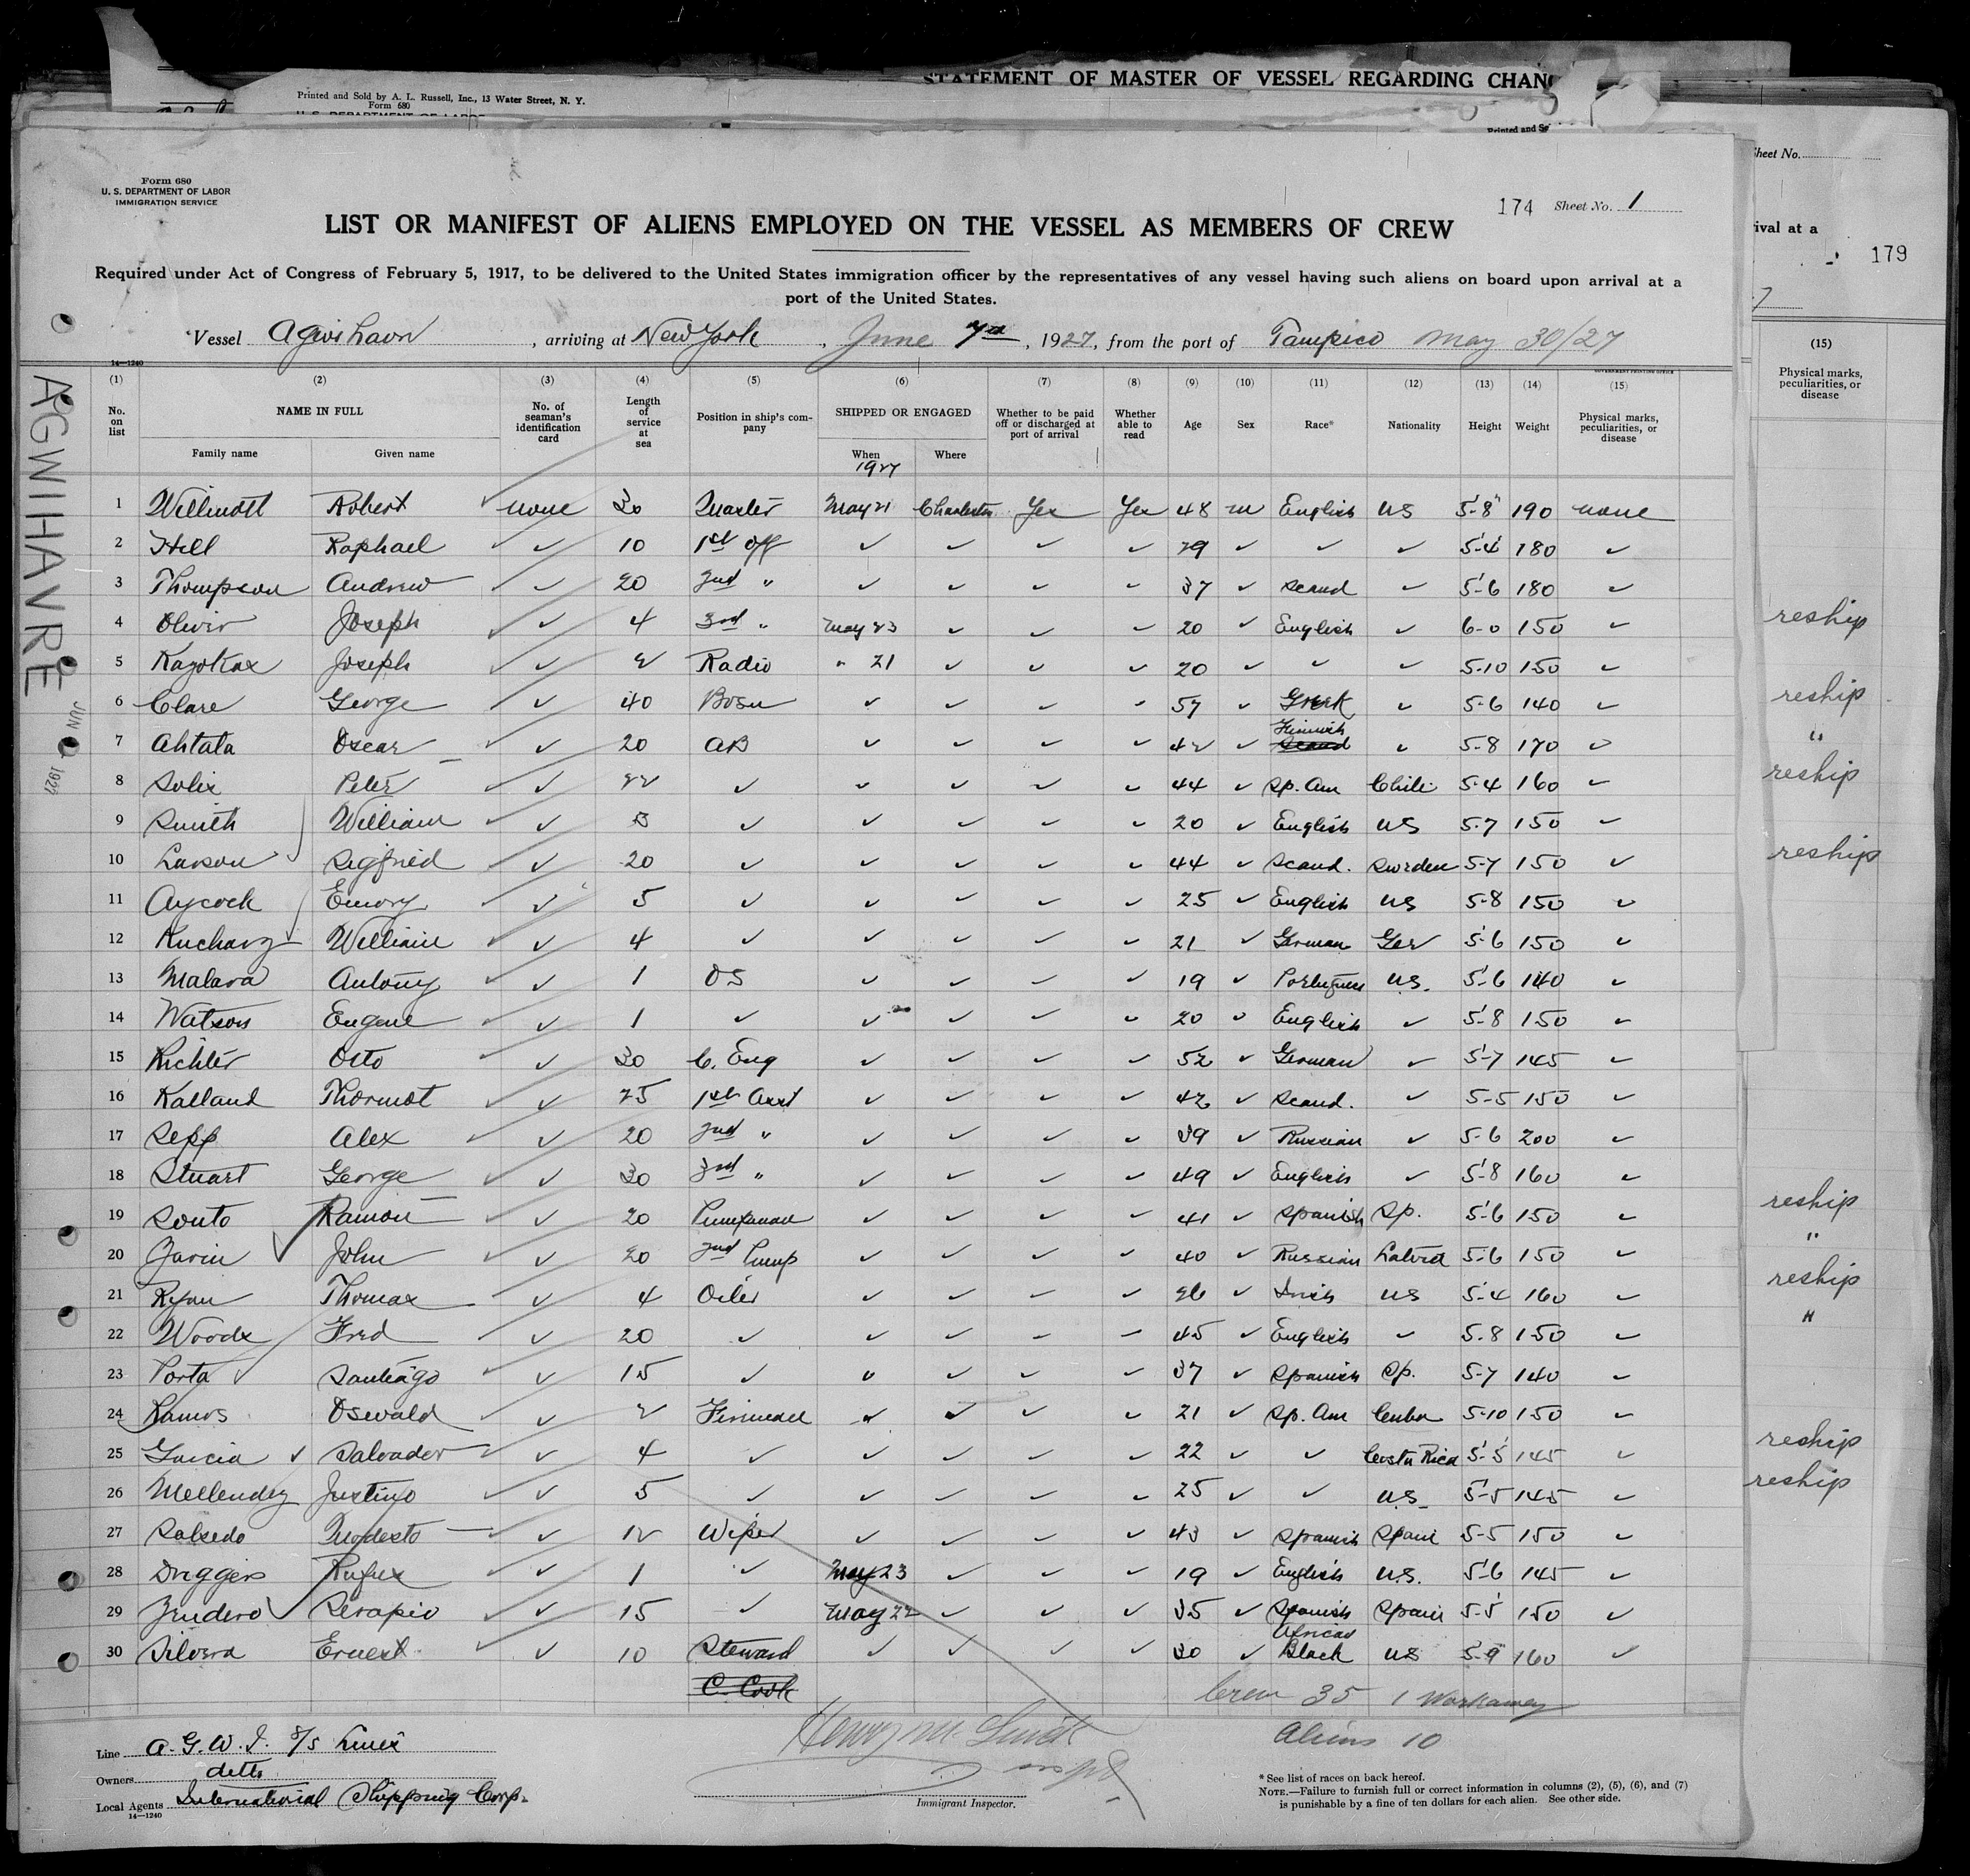 STATEMENT OF MASTER OF VESSEL REGARDING CHAN
Printed and Sold by A. L. Russell, Inc., 13 Water Street, N. Y.
Form 680
U. S. DEPARTMENT OF LABOR
Printed and So
Sheet No.
Form 680
U. S. DEPARTMENT OF LABOR
IMMIGRATION SERVICE
174 Sheet No. 1
LIST OR MANIFEST OF ALIENS EMPLOYED ON THE VESSEL AS MEMBERS OF CREW
ival at a
179
Required under Act of Congress of February 5, 1917, to be delivered to the United States immigration officer by the representatives of any vessel having such aliens on board upon arrival at a
port of the United States.
Vessel Agwihavre, arriving at New York, June 7th, 1927, from the port of Tampico May 30/27
14—1240
GOVERNMENT PRINTING OFFICE
(1) (2) (3) (4) (5) (6) (7) (8) (9) (10) (11) (12) (13) (14) (15)
No. on list NAME IN FULL Family name Given name No. of seaman's identification card Length of service at sea Position in ship's company SHIPPED OR ENGAGED When 1927 Where Whether to be paid off or discharged at port of arrival Whether able to read Age Sex Race* Nationality Height Weight Physical marks, peculiarities, or disease
(15)
Physical marks, peculiarities, or disease
AGWIHAVRE
JUN 1927
1 Willmott Robert ✓ none 30 Master May 21 Charleston Yes Yes 48 m English US 5'-8" 190 none
2 Hill Raphael ✓ ✓ 10 1st Off ✓ ✓ ✓ ✓ 29 ✓ ✓ ✓ 5'-4 180 ✓
3 Thompson Andrew ✓ ✓ 20 2nd " ✓ ✓ ✓ ✓ 37 ✓ Scand ✓ 5'-6 180 ✓
4 Oliver Joseph ✓ ✓ 4 3rd " May 23 ✓ ✓ ✓ 20 ✓ English ✓ 6-0 150 ✓ reship
5 Joseph ✓ ✓ 2 Radio " 21 ✓ ✓ ✓ 20 ✓ ✓ ✓ 5-10 150 ✓
6 Clare George ✓ ✓ 40 Bosn ✓ ✓ ✓ ✓ 57 ✓ Greek ✓ 5-6 140 ✓ reship
7 Ahtala Oscar ✓ ✓ 20 AB ✓ ✓ ✓ ✓ 42 ✓ Finnish Scand ✓ 5-8 170 ✓ "
8 Solis Peter ✓ ✓ 22 ✓ ✓ ✓ ✓ ✓ 44 ✓ Sp. Am Chili 5-4 160 ✓ reship
9 Smith William ✓ ✓ 3 ✓ ✓ ✓ ✓ ✓ 20 ✓ English US 5-7 150 ✓
10 Larson Sigfried ✓ ✓ 20 ✓ ✓ ✓ ✓ ✓ 44 ✓ Scand. Sweden 5-7 150 ✓ reship
11 Aycock Emory ✓ ✓ 5 ✓ ✓ ✓ ✓ ✓ 25 ✓ English US 5-8 150 ✓
12 Kucharz William ✓ ✓ 4 ✓ ✓ ✓ ✓ ✓ 21 ✓ German Ger 5'-6 150 ✓
13 Malava Antony ✓ ✓ 1 OS ✓ ✓ ✓ ✓ 19 ✓ Portuguese US. 5'-6 140 ✓
14 Watson Eugene ✓ ✓ 1 ✓ ✓ ✓ ✓ ✓ 20 ✓ English ✓ 5'-8 150 ✓
15 Richter Otto ✓ ✓ 30 C. Eng ✓ ✓ ✓ ✓ 52 ✓ German ✓ 5'-7 145 ✓
16 Kalland Thormot ✓ ✓ 25 1st Asst ✓ ✓ ✓ ✓ 42 ✓ Scand. ✓ 5-5 150 ✓
17 Sepp Alex ✓ ✓ 20 2nd " ✓ ✓ ✓ ✓ 39 ✓ Russian ✓ 5-6 200 ✓
18 Stuart George ✓ ✓ 30 3rd " ✓ ✓ ✓ ✓ 49 ✓ English ✓ 5'-8 160 ✓
19 Souto Ramon ✓ ✓ 20 Pumpman ✓ ✓ ✓ ✓ 41 ✓ Spanish Sp. 5'-6 150 ✓ reship
20 Garin John ✓ ✓ 20 2nd Pump ✓ ✓ ✓ ✓ 40 ✓ Russian Latvia 5-6 150 ✓ "
21 Ryan Thomas ✓ 4 Oiler ✓ ✓ ✓ ✓ 26 ✓ Irish US 5'-4 160 ✓ reship
22 Woods Fred ✓ ✓ 20 ✓ ✓ ✓ ✓ ✓ 45 ✓ English ✓ 5-8 150 ✓ "
23 Porta Santiago ✓ ✓ 15 ✓ ✓ ✓ ✓ ✓ 37 ✓ Spanish Sp. 5-7 140 ✓
24 Ramos Oswald ✓ ✓ 2 Fireman ✓ ✓ ✓ ✓ 21 ✓ Sp. Am Cuba 5-10 150 ✓
25 Garcia Salvador ✓ ✓ 4 ✓ ✓ ✓ ✓ ✓ 22 ✓ ✓ Costa Rica 5'-5 145 ✓ reship
26 Mellendez Justino ✓ ✓ 5 ✓ ✓ ✓ ✓ ✓ 25 ✓ ✓ US 5'-5 145 ✓ reship
27 Salsedo Modesto ✓ 12 Wiper ✓ ✓ ✓ ✓ 43 ✓ Spanish Spain 5-5 150 ✓
28 Driggers Rufus ✓ ✓ 1 ✓ May 23 ✓ ✓ ✓ 19 ✓ English U.S. 5'-6 145 ✓
29 Serapio ✓ ✓ 15 ✓ May 22 ✓ ✓ ✓ 35 ✓ Spanish Spain 5-5 150 ✓
30 Silvera Ernest ✓ ✓ 10 Steward ✓ ✓ ✓ ✓ 30 ✓ African Black US 5-9 160 ✓
C. Cook
Crew 35 1 Workaway
Aliens 10
Line A. G. W. I. S/S Lines
Owners ditto
Local Agents International Shipping Corp.
14—1240
Immigrant Inspector.
* See list of races on back hereof.
NOTE.—Failure to furnish full or correct information in columns (2), (5), (6), and (7)
is punishable by a fine of ten dollars for each alien. See other side.